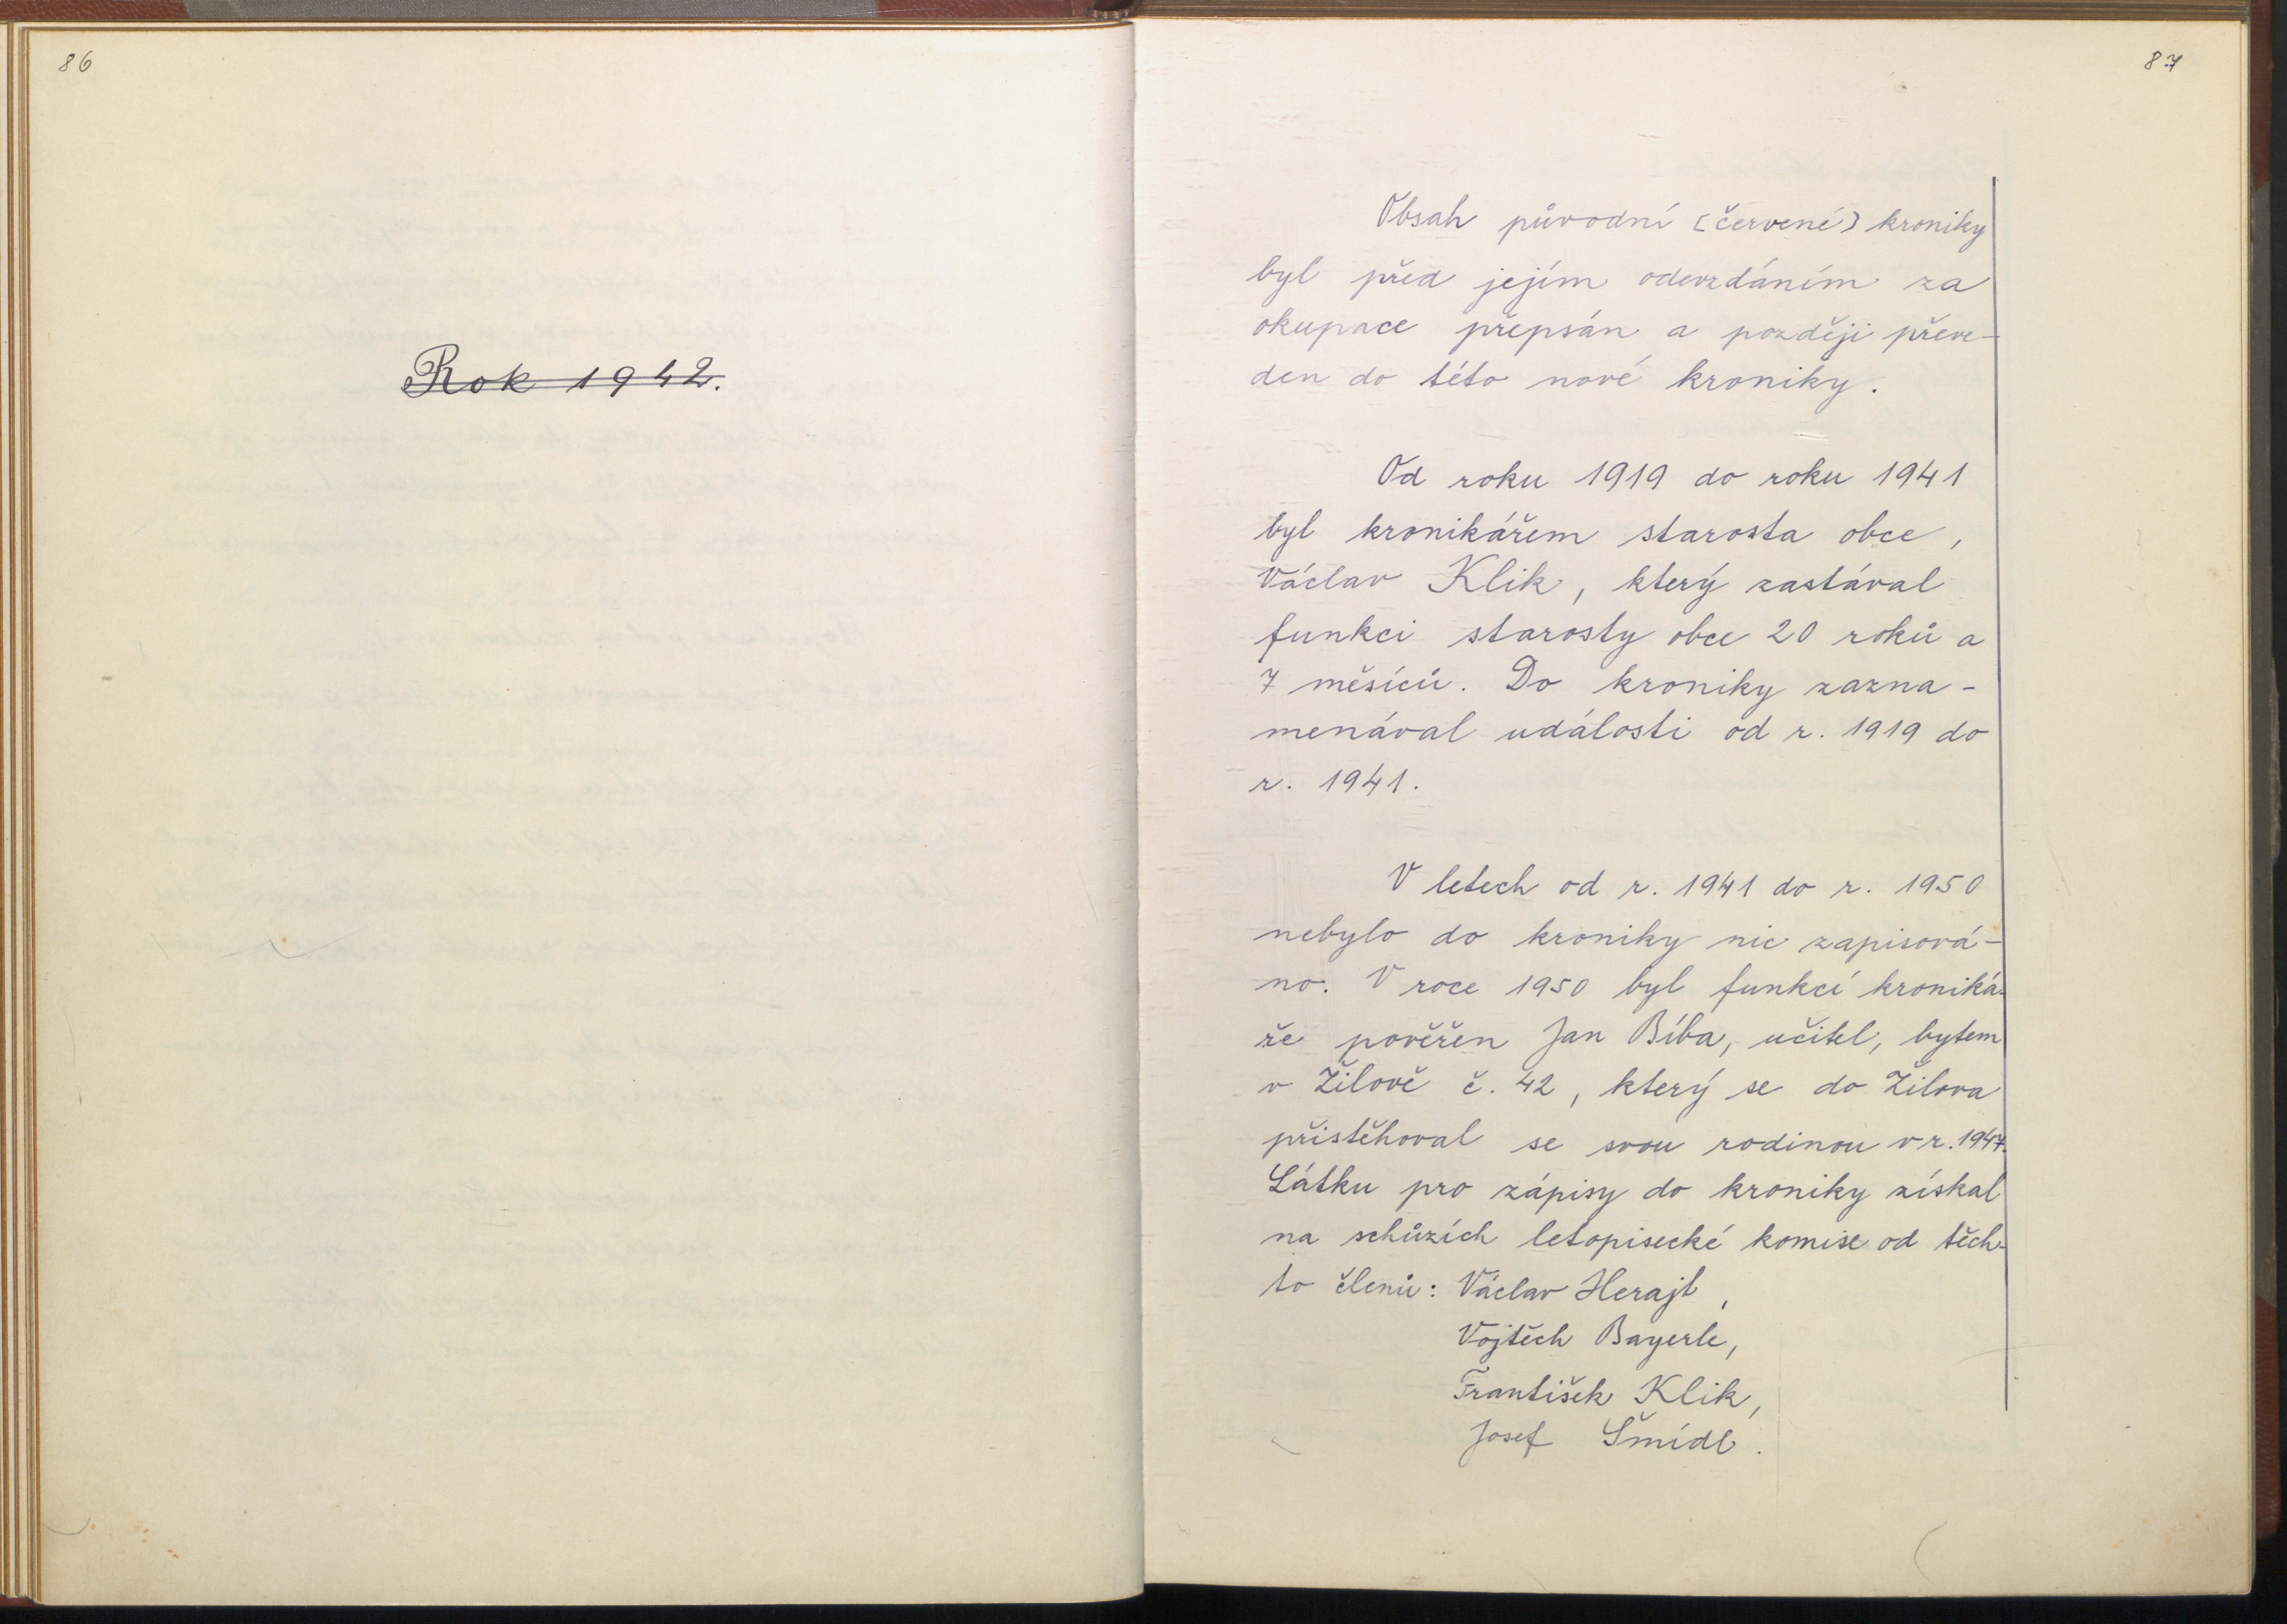 86
Rok 1942.
87
Obsah původní (červené) kroniky
byl před jejím odevzdáním za
okupace přepsán a později převe-
den do této nové kroniky.
Od roku 1919 do roku 1941
byl kronikářem starosta obce,
Václav Klik, který zastával
funkci starosty obce 20 roků a
7 měsíců. Do kroniky zazna-
menával události od r. 1919 do
r. 1941.
V letech od r. 1941 do r. 1950
nebylo do kroniky nic zapisová-
no. V roce 1950 byl funkcí kroniká-
ře pověřen Jan Bíba, učitel, bytem
v Žilově č. 42, který se do Žilova
přistěhoval se svou rodinou v r. 1947.
Látku pro zápisy do kroniky získal
na schůzích letopisecké komise od těch-
to členů: Václav Herajt,
Vojtěch Bayerle,
František Klik,
Josef Šmídl.